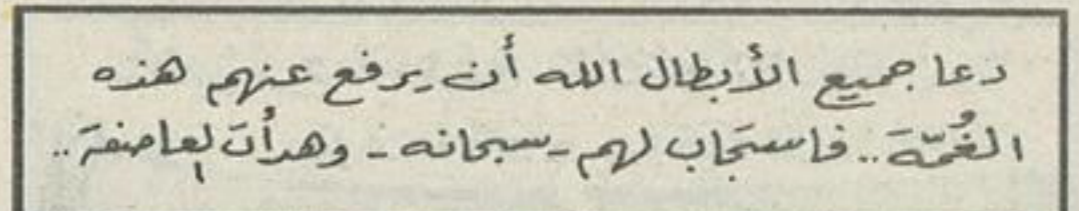 دعا جميع الأبطال الله أن يرفع عنهم هذه
الغُمّة.. فاستجاب لهم - سبحانه - وهدأت العاصفة..